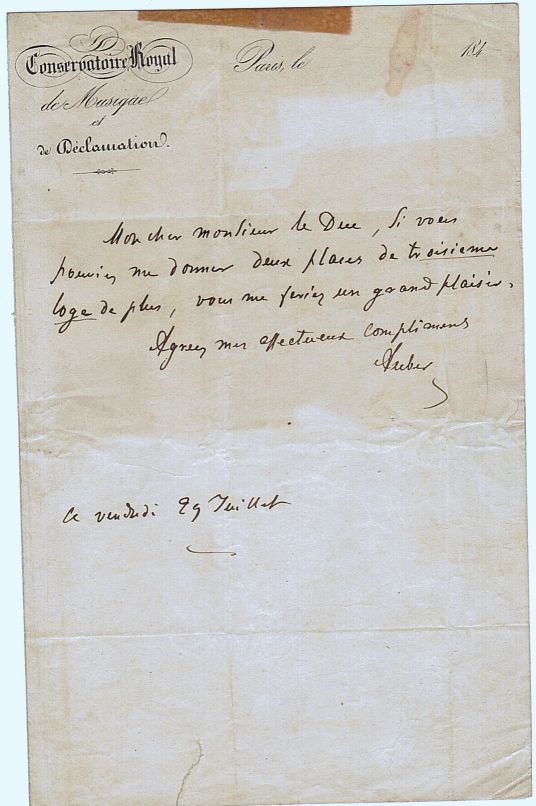 Conservatoire Royal
de Musique
et
de Déclamation.
Paris, le 184
Mon cher monsieur le Duc, Si vous
pouviez me donner deux places de troisieme
loge de plus, vous me feriez un grand plaisir.
Agreez mes affectueux compliments
Auber
Ce vendredi 29 Juillet